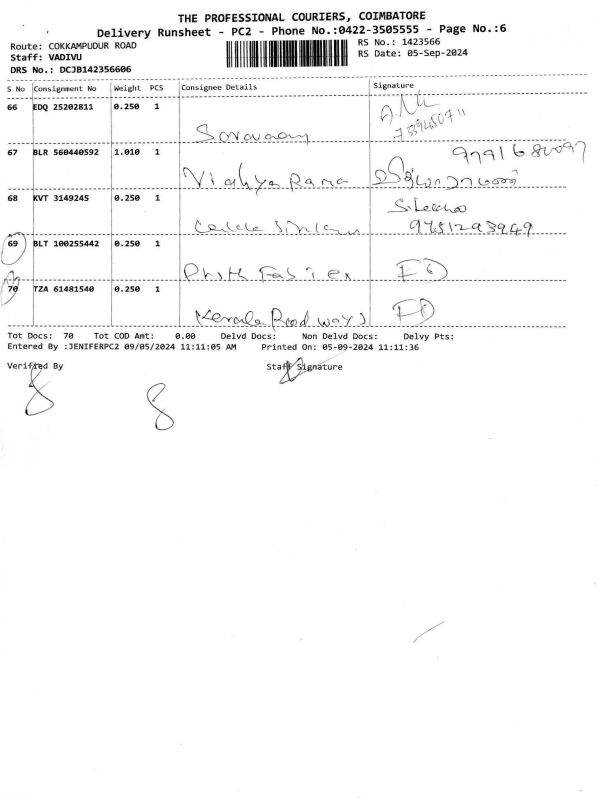 THE PROFESSIONAL COURIERS, COIMBATORE
Delivery Runsheet - PC2 - Phone No.:0422-3505555 - Page No.:6
Route: COKKAMPUDUR ROAD RS No.: 1423566
Staff: VADIVU RS Date: 05-Sep-2024
DRS No.: DCJB142356606
S No Consignment No Weight PCS Consignee Details Signature
66 EDQ 25202811 0.250 1
67 BLR 560440592 1.010 1
Vidhya Rama
68 KVT 3149245 0.250 1
9751293949
69 BLT 100255442 0.250 1
70 TZA 61481540 0.250 1
Kerala Road ways
Tot Docs: 70 Tot COD Amt: 0.00 Delvd Docs: Non Delvd Docs: Delvy Pts:
Entered By :JENIFERPC2 09/05/2024 11:11:05 AM Printed On: 05-09-2024 11:11:36
Verified By Staff Signature